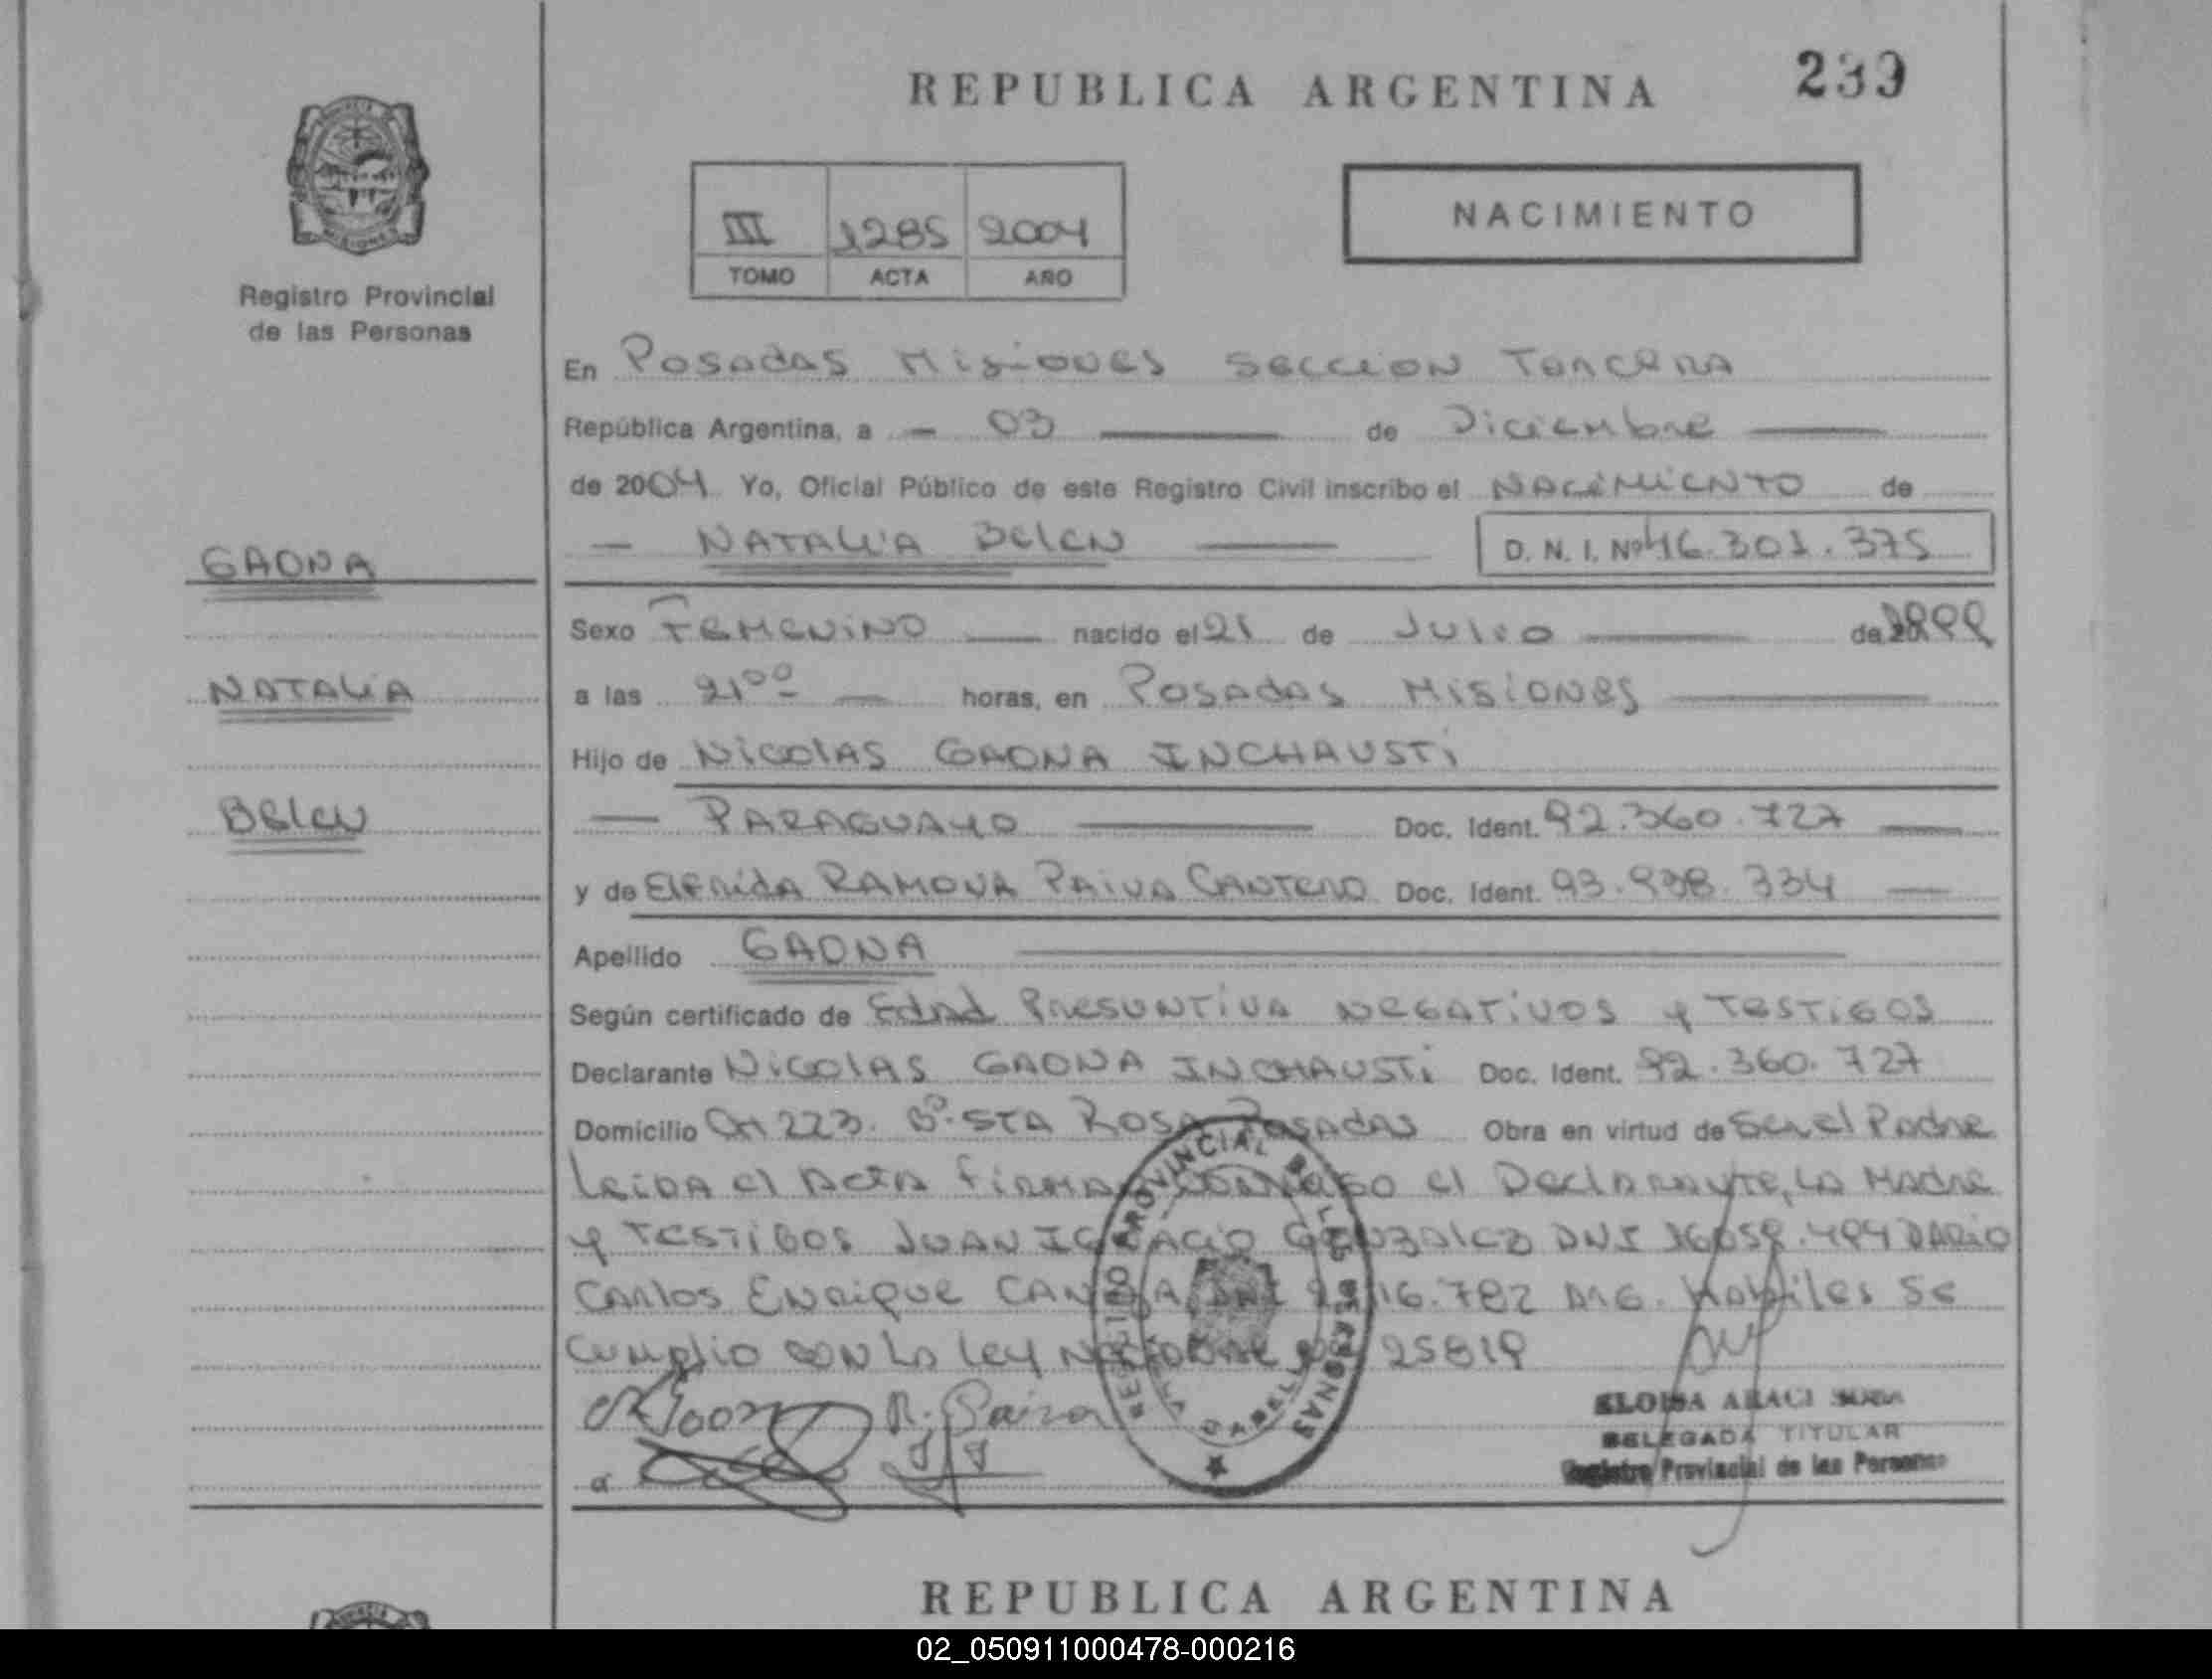 REPUBLICA ARGENTINA
239
III 1285 2004
TOMO ACTA AÑO
NACIMIENTO
MISIONES
Registro Provincial
de las Personas
En Posadas Misiones Seccion Tercera
República Argentina, a 03 de Diciembre
de 2004 Yo, Oficial Público de este Registro Civil inscribo el NACIMIENTO de
NATALIA Belen
D. N. I. Nº 46.301.375
GAONA
NATALIA
Belen
Sexo FEMENINO nacido el 21 de Julio de 1999
a las 21ºº horas, en Posadas Misiones
Hijo de Nicolas GAONA INCHAUSTI
PARAGUAYO Doc. Ident. 92.360.727
y de Elfrida RAMONA PAIVA CANTERO Doc. Ident. 93.938.334
Apellido GAONA
Según certificado de Edad Presuntiva Negativos y Testigos
Declarante Nicolas GAONA INCHAUSTI Doc. Ident. 92.360.727
Domicilio CH 223. Bº. STA ROSA Posadas Obra en virtud de Ser el Padre
Leida el Acta Firman el Declarante, la Madre
y Testigos JUAN IGNACIO GONZALEZ DNI DARIO
Carlos Enrique 16.782 ARG. Habiles Se
Cumplio con la Ley Nacional 25819
R. Paiva
REGISTRO PROVINCIAL DE LAS PERSONAS
ELOISA ARACI
DELEGADA TITULAR
Registro Provincial de las Personas
REPUBLICA ARGENTINA
02_050911000478-000216